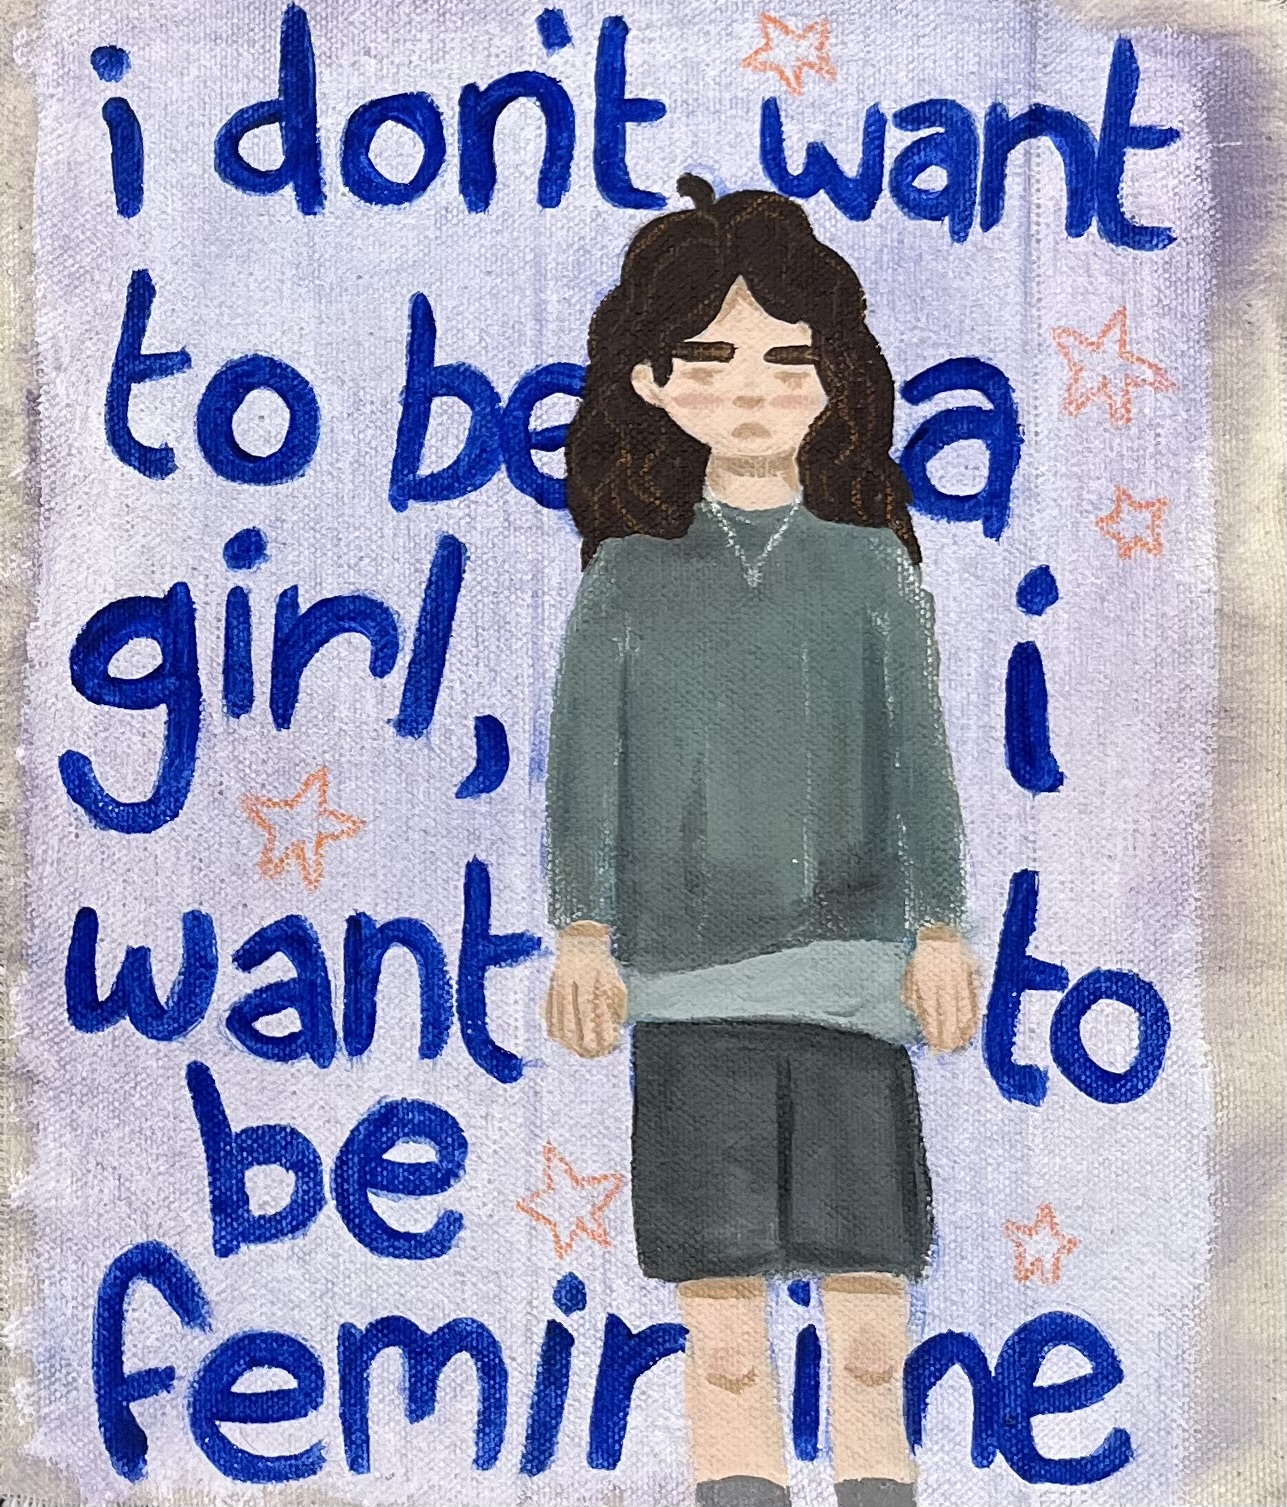 i don't want
to be a
girl, i
want to
be
feminine